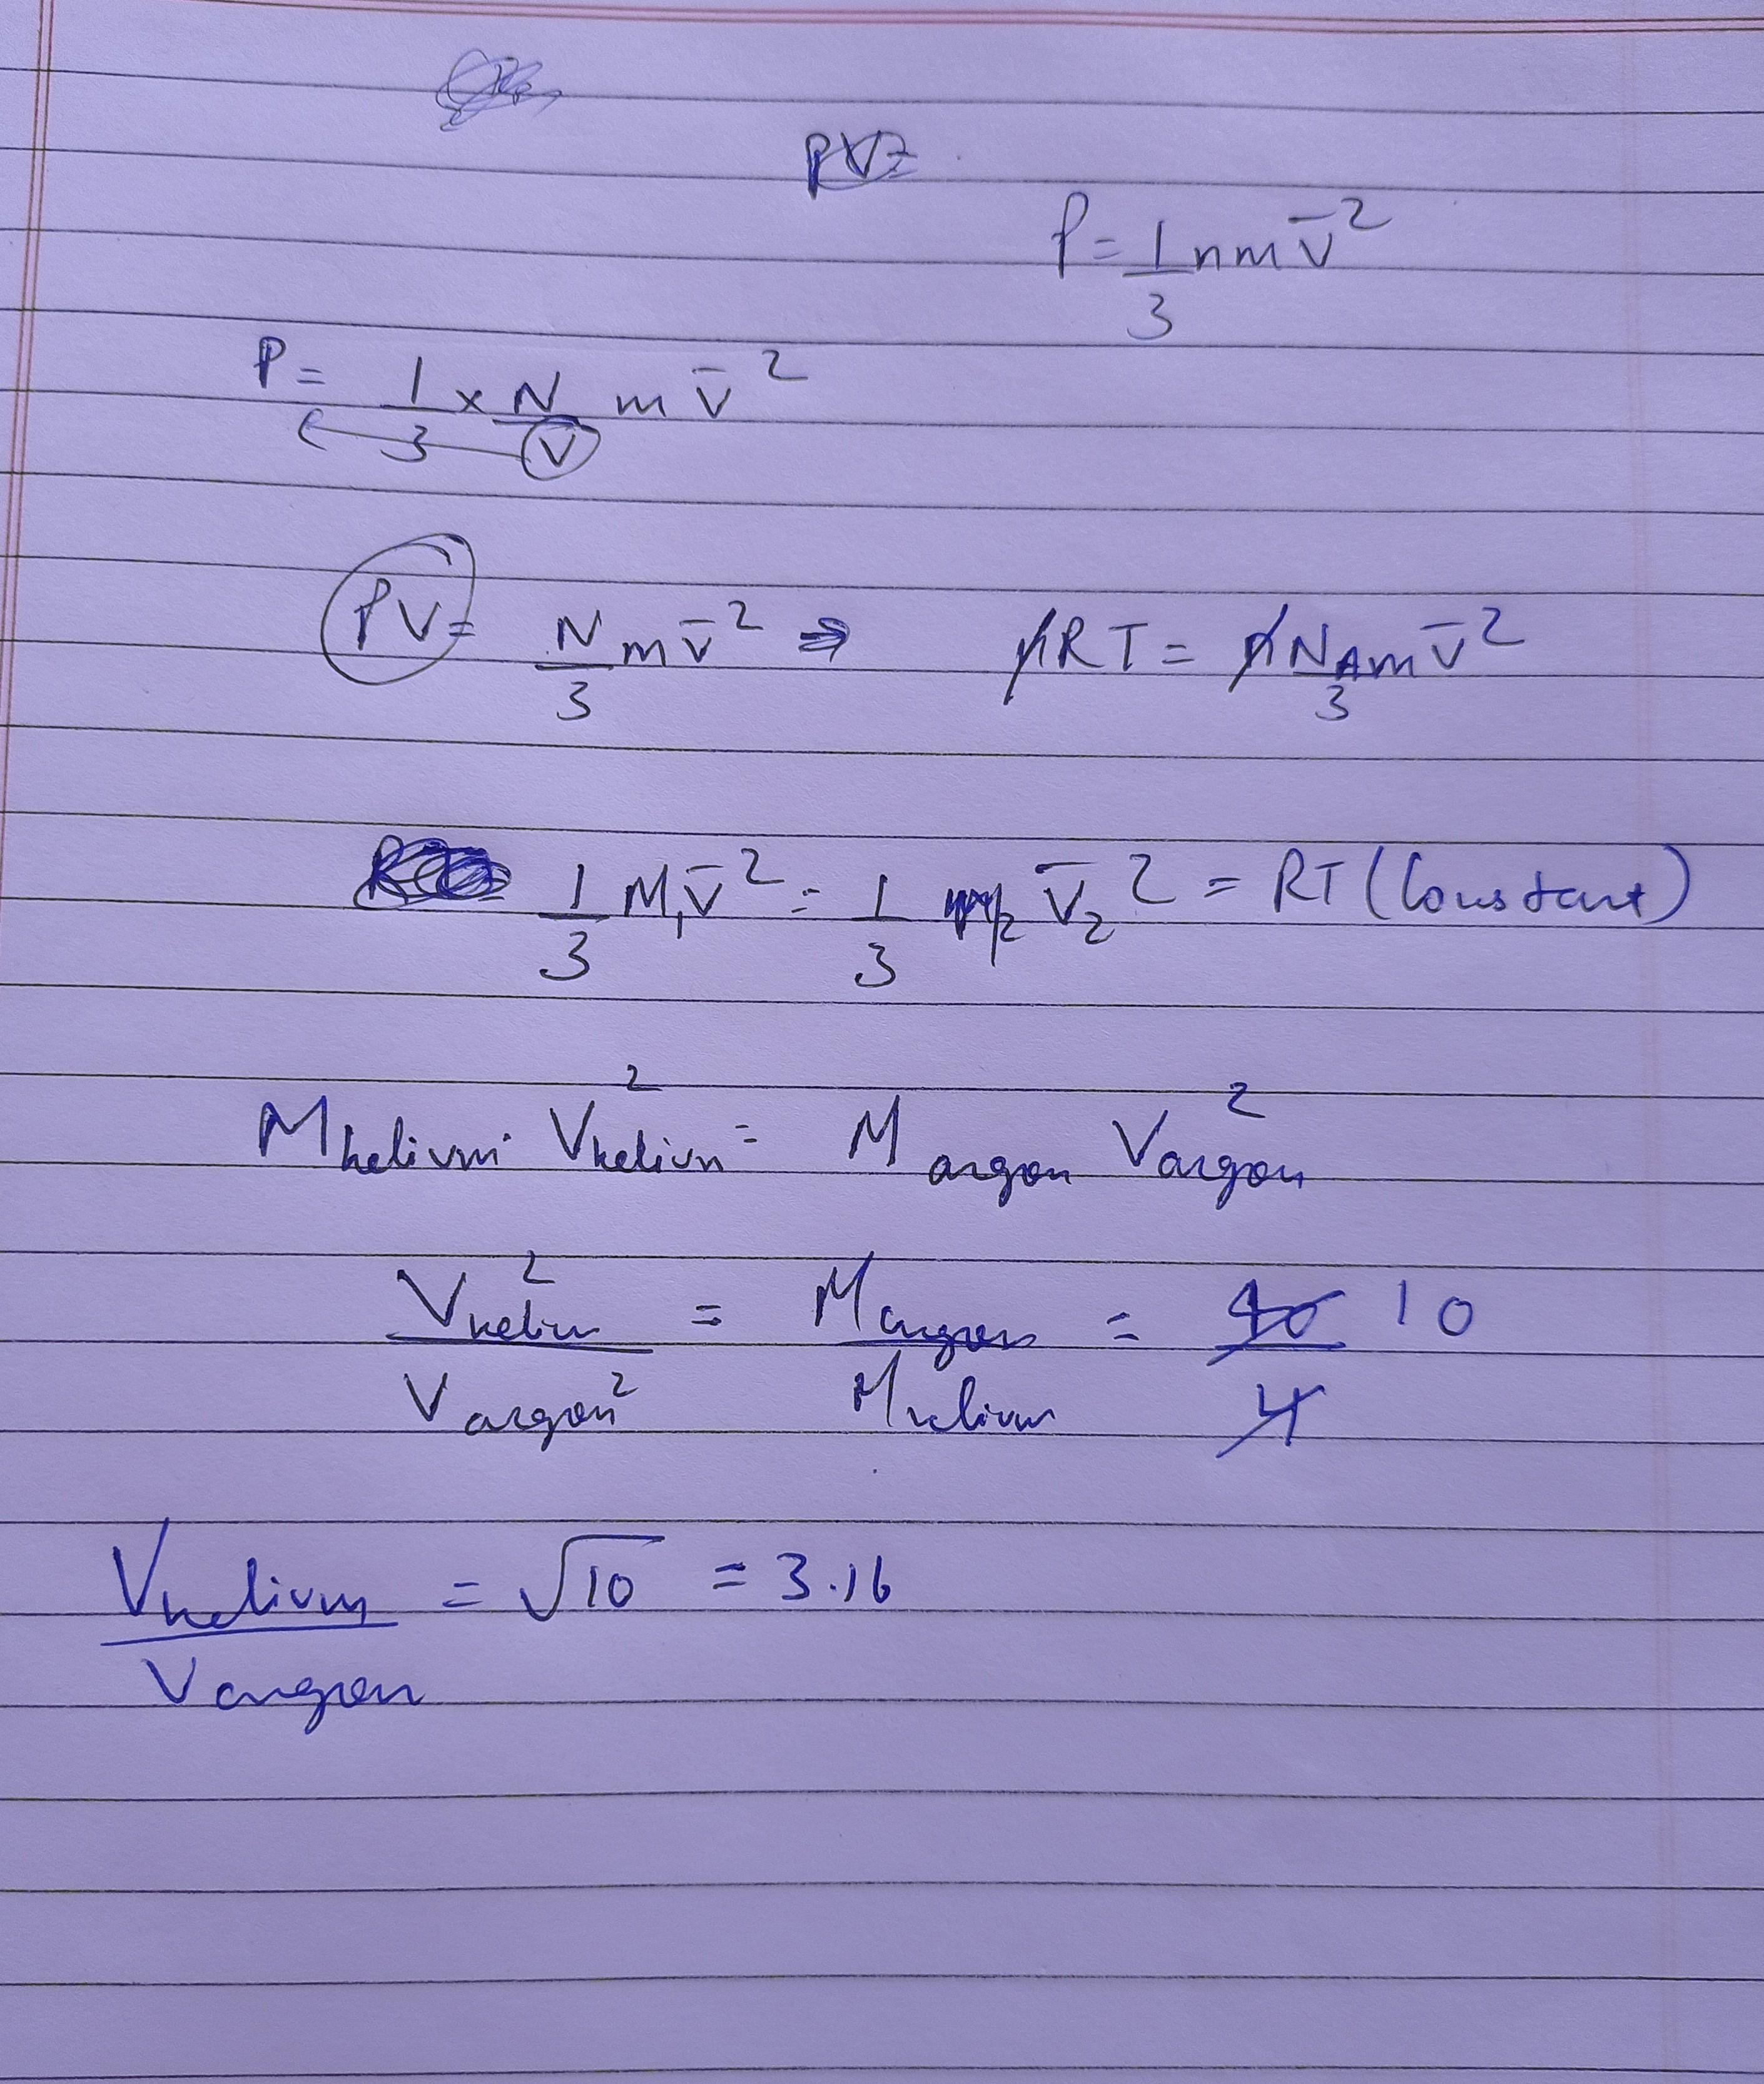 PV=
P = 1/3 nm v̄²
P = 1/3 × N/V m v̄²
PV = N/3 m v̄² ⇒ nRT = nN_A m v̄²/3
1/3 M₁ v̄² = 1/3 m₂ v̄₂² = RT (Constant)
M helium · V helium² = M argon V argon²
V helium²/V argon² = M argon/M helium = 40/4 10
V helium/V argon = √10 = 3.16